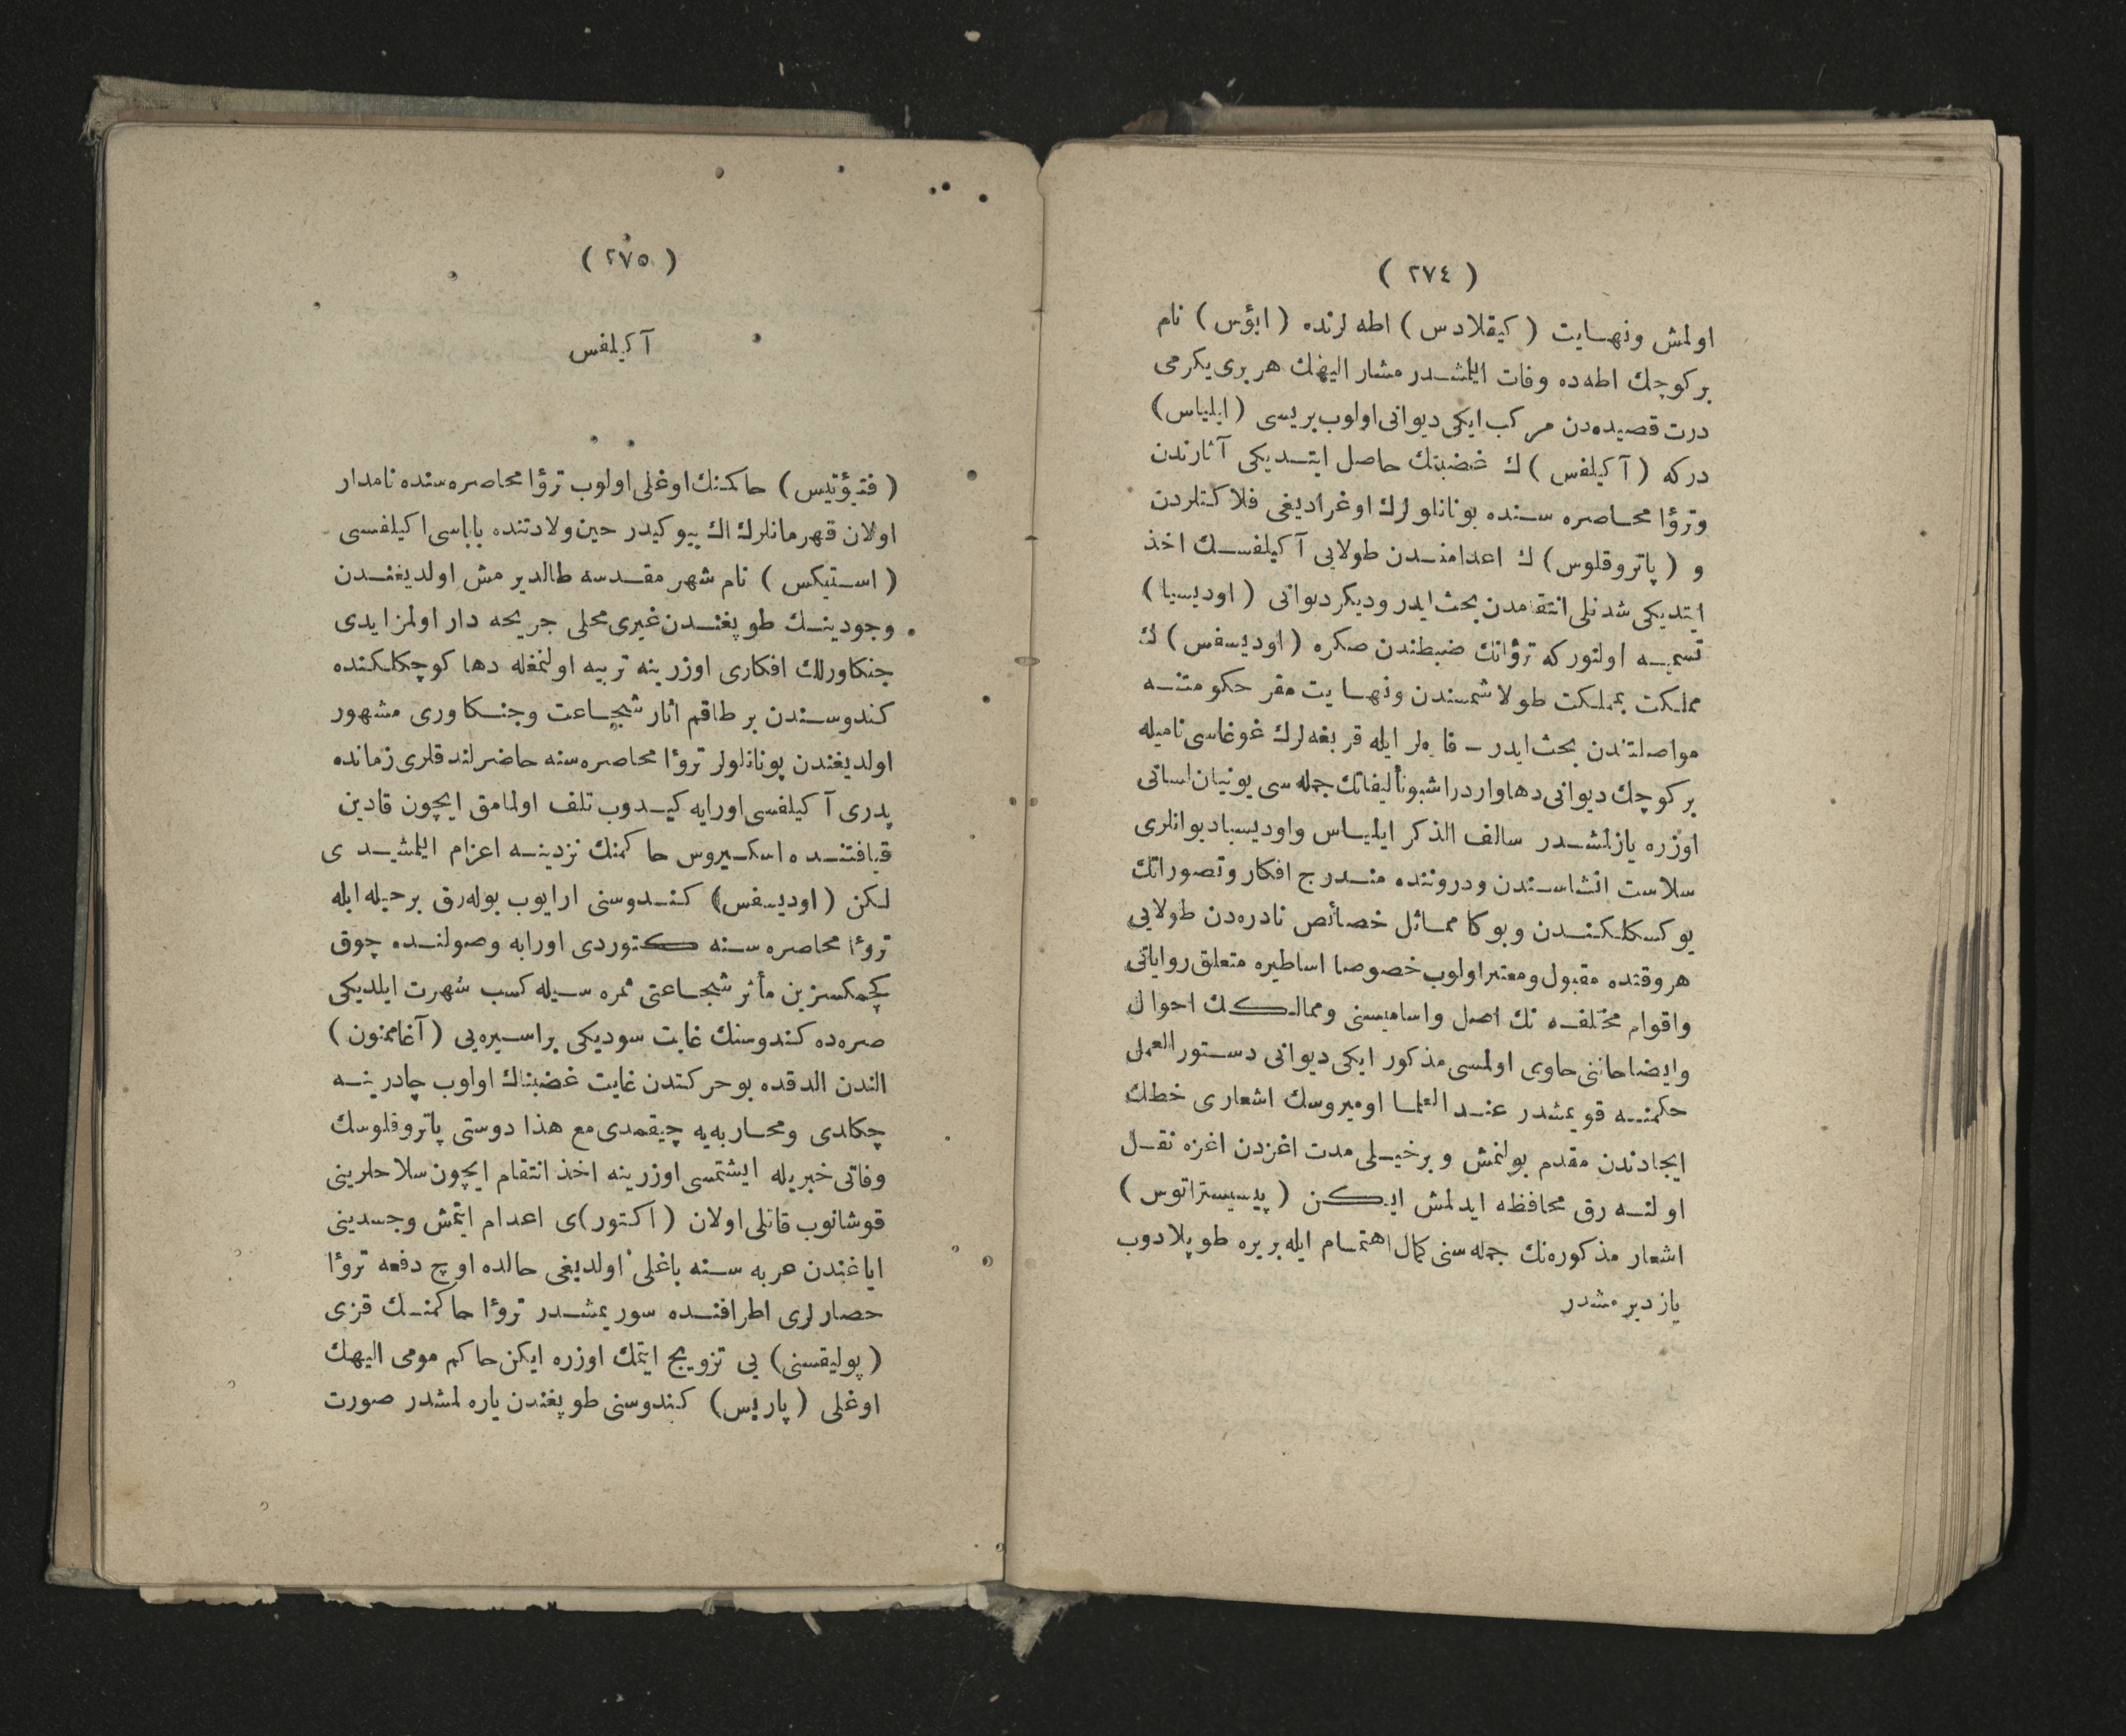 ( ٢٧٤ )
اولمش ونهايت ( كيقلادس ) اطه لرنده ( ابؤس ) نام
بر كوچك اطه ده وفات ايلمشدر مشار اليهك هر برى يكرمى
درت قصيده دن مركب ايكى ديوانى اولوب بريسى ( ايلياس )
دركه ( آكيلفس ) ك غضبنك حاصل ايتديكى آثارندن
وترؤا محاصره سنده يونانلولرك اوغراديغى فلاكتلردن
و ( پاتروقلوس ) ك اعدامندن طولايى آكيلفسك اخذ
ايتديكى شدتلى انتقامدن بحث ايدر وديكر ديوانى ( اوديسيا )
تسميه اولنور كه ترؤانك ضبطندن صكره ( اوديسفس ) ك
مملكت بمملكت طولاشمسندن ونهايت مقر حكومتنه
مواصلتندن بحث ايدر – فاره لر ايله قربغه لرك غوغاسى ناميله
بر كوچك ديوانى دها واردر اشبو تأليفاتك جمله سى يونيان لسانى
اوزره يازلمشدر سالف الذكر ايلياس واوديسيا ديوانلرى
سلاست انشاسندن ودروننده مندرج افكار وتصوراتك
يوكسكلكندن وبوكا مماثل خصائص نادره دن طولايى
هر وقتده مقبول ومعتبر اولوب خصوصا اساطيره متعلق رواياتى
واقوام مختلفه نك اصل واساميسنى وممالكك احوال
وايضاحاتنى حاوى اولمسى مذكور ايكى ديوانى دستور العمل
حكمنه قويمشدر عند العلما اوميروسك اشعارى خطك
ايجادندن مقدم بولنمش و برخيلى مدت اغزدن اغزه نقل
اولنه رق محافظه ايدلمش ايكن ( پيسيستراتوس )
اشعار مذكوره نك جمله سنى كمال اهتمام ايله بريره طوپلادوب
يازديرمشدر
( ٢٧٥ )
آكيلفس
( فتيؤتيس ) حاكمنك اوغلى اولوب ترؤا محاصره سنده نامدار
اولان قهرمانلرك اك بيوكيدر حين ولادتنده باباسى اكيلفسى
( استيكس ) نام شهر مقدسه طالديرمش اولديغندن
وجودينك طوپغندن غيرى محلى جريحه دار اولمز ايدى
جنكاورلك افكارى اوزرينه تربيه اولنمغله دها كوچكلكنده
كندوسندن بر طاقم اثار شجاعت وجنكاورى مشهور
اولديغندن يونانلولر ترؤا محاصره سنه حاضرلندقلرى زمانده
پدرى آكيلفسى اورايه كيدوب تلف اولمامق ايچون قادين
قيافتنده اسكيروس حاكمنك نزدينه اعزام ايلمشيدى
لكن ( اوديسفس ) كندوسنى ارايوب بوله رق برحيله ايله
ترؤا محاصره سنه كتوردى اورايه وصولنده چوق
كچمكسزين مأثر شجاعتى ثمره سيله كسب شهرت ايلديكى
صره ده كندوسنك غايت سوديكى براسيره يى ( آغاممنون )
الندن الدقده بوحركتدن غايت غضبناك اولوب چادرينه
چكلدى ومحاربه يه چيقمدى مع هذا دوستى پاتروقلوسك
وفاتى خبريله ايشتمسى اوزرينه اخذ انتقام ايچون سلاحلرينى
قوشانوب قاتلى اولان ( اكتور ) ى اعدام ايتمش وجسدينى
اياغندن عربه سنه باغلى اولديغى حالده اوچ دفعه ترؤا
حصارلرى اطرافنده سوريمشدر ترؤا حاكمنك قزى
( پوليقسنى ) يى تزويج ايتمك اوزره ايكن حاكم مومى اليهك
اوغلى ( پاريس ) كندوسنى طوپغندن ياره لمشدر صورت